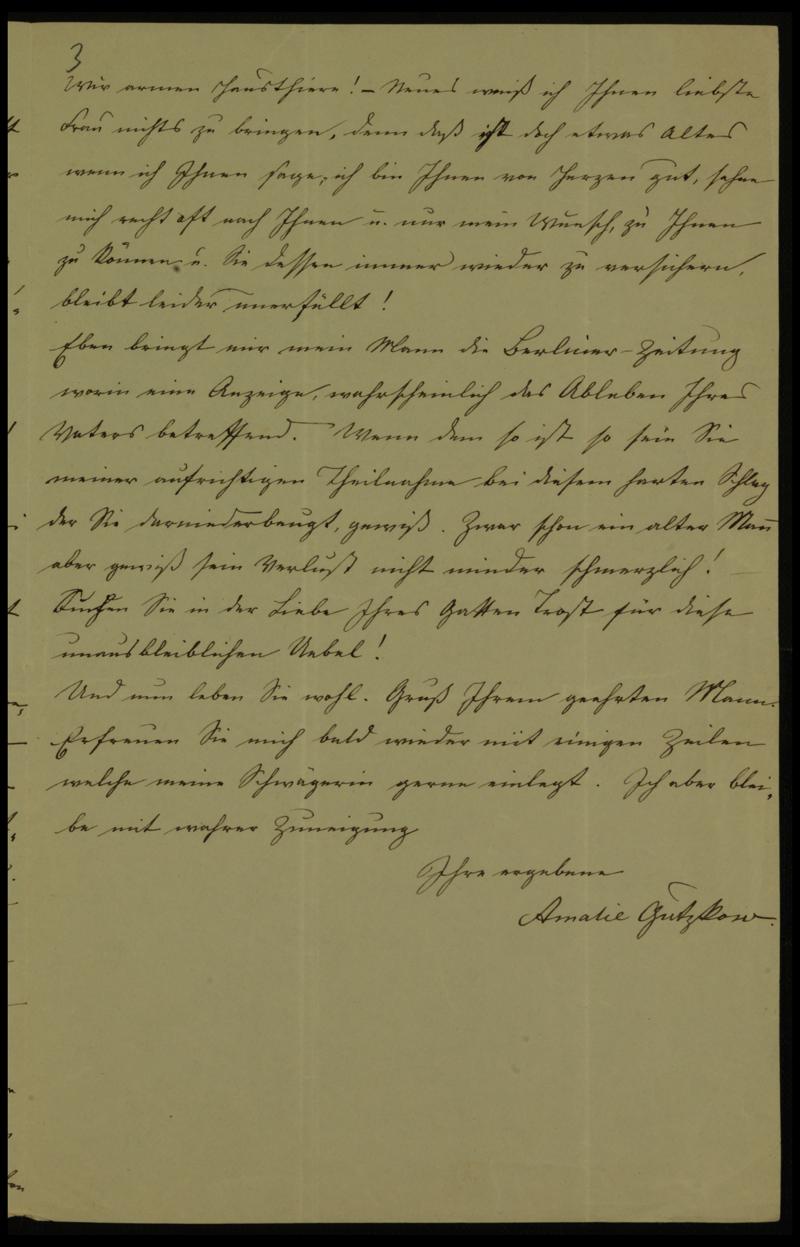 3
Wir armen Hausthiere! – Neues weiß ich Ihnen liebste
Frau nichts zu bringen, denn daß ist doch etwas Altes
wenn ich Ihnen sage, ich bin Ihnen von Herzen gut, sehne
mich recht oft nach Ihnen u. nur mein Wunsch, zu Ihnen
zu können u. Sie dessen immer wieder zu versichern,
bleibt leider unerfüllt!
Eben bringt mir mein Mann die Berliner-Zeitung
worin eine Anzeige, wahrscheinlich das Ableben Ihres
Vaters betreffend. Wenn dem so ist so sein Sie
meiner aufrichtigen Theilnahme bei diesem harten Schlag
der Sie darniederbeugt, gewiß. Zwar schon ein alter Mann
aber gewiß sein Verlust nicht minder schmerzlich! –
Suchen Sie in der Liebe Ihres Gatten Trost für diese
unausbleiblichen Uebel!
Und nun leben Sie wohl. Gruß Ihrem geehrten Mann.
Erfreuen Sie mich bald wieder mit einigen Zeilen
welche meine Schwägerin gerne einlegt. Ich aber blei-
be mit wahrer Zuneigung
Ihre ergebene
Amalie Gutzkow.